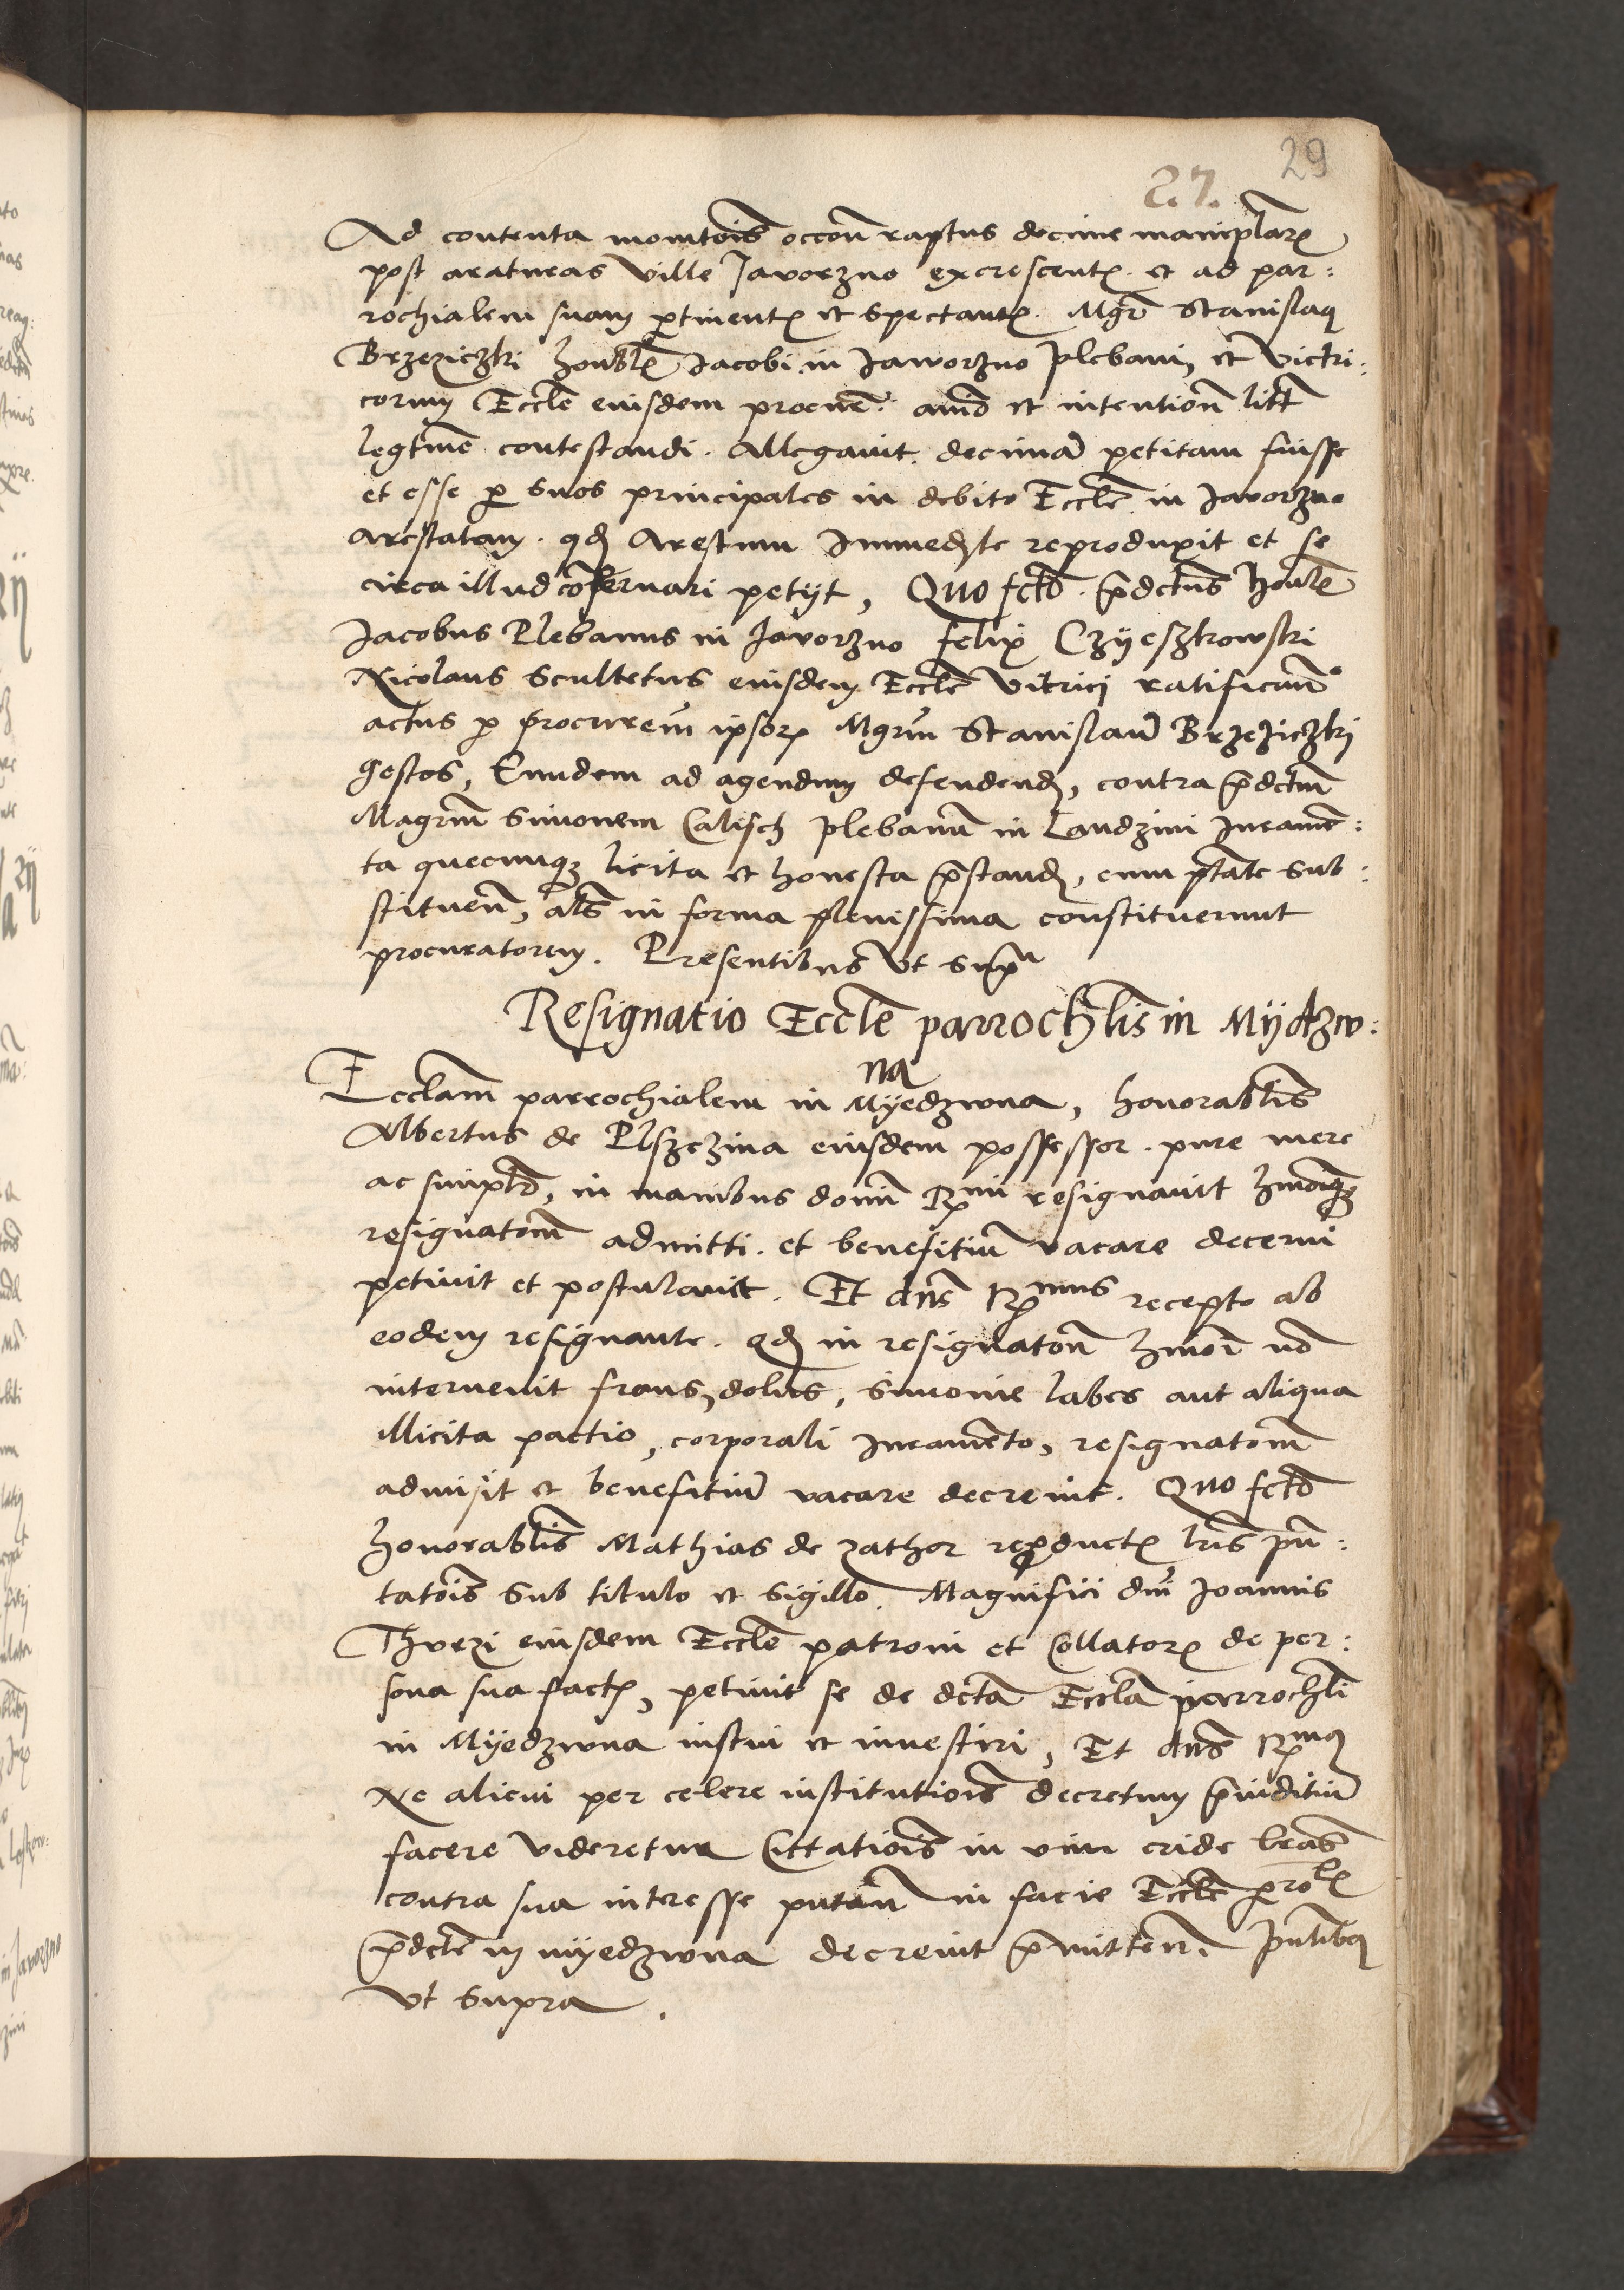 29
27.
Ad contenta monitōis occōn raptus decime manipłarꝫ
post araturas ville Javorzno excrescentꝫ. et ad par:
rochialem suam ꝑtinentꝫ et spectantꝫ. Mgr̄ Stanislaꝰ
Brzeziczki honbłꝫ Jacobi in Jaworzno plebani, et victri:
corum Ecclē eiusdem procuꝛ̄. aīmo et intentiōn litt̄
legtīme contestandi. Allegavit. decimā petitam fuisse
et esse ꝑ suos principales in debito Ecclē in Javorzno
arestatam. qđ Arestum Immedꝫte reproduxit et se
circa illud cōservari petijt, Quo fctō. p̄dctus honlē
Jacobus Plebanus in Javorzno felix Czijeszkowski
Nicolaus Scultetus eiusdem Ecclē vitrici ratificaūt
actus ꝑ procurem̄ ipsorꝫ Mgrm̄ Stanislaū Brzeziczkij
gestos, Eundem ad agendum defendendꝫ, contra p̄dctm̄
Magrm̄ Simonem Calisch plebanū in Landzini Juramē:
ta quecunqꝫ licita et honesta p̄standꝫ, cum ptāte sub:
stituen̄, als̄ in forma plenissima constituerunt
procuratorem. Presentibus vt supᵃ
Resignatio Ecclē parrochlis in Mijdzw:
na
Ecclam̄ parrochialem in Myedzwna, honorablis̄
Albertus de Plszczina eiusdem possessor. pure mere
ac simpłr, in manibus domi R̄ᵐⁱ resignavit hmōiqꝫ
resignatom̄ admitti. et benefitiū vacare decerni
petivit et postulavit. Et dn̄s R̄ᵐᵘˢ recepto ab
eodem resignante. qđ in resignatōn hmōi nō
intervenit fraus, dolus, simonie labes aut aliqua
illicita pactio, corporali Juramēto, resignatom̄
admisit et benefitiū vacare decrevit. Quo fctō
honorablis̄ Mathias de zathor reꝓductꝫ lr̄is pn̄:
tatōis sub titulo et sigillo. Magnifici dnī Joannis
Thurzi eiusdem Ecclē patroni et Collatorꝫ de per:
sona sua factꝫ, petivit se de dcta Eccla parrochli
in Myedzwna institui et investiri, Et dn̄s R̄ᵐꝰ
Ne alicui per celere institutiōis decretum p̄iuditiū
facere videretur Citatiōis in vim cride lrās
contra sua interesse putan̄ in facie Ecclē ꝑroˡꝫ
p̄dctē in myedzwna decrevit p̄mitten̄. Pn̄tibꝰ
vt supra.